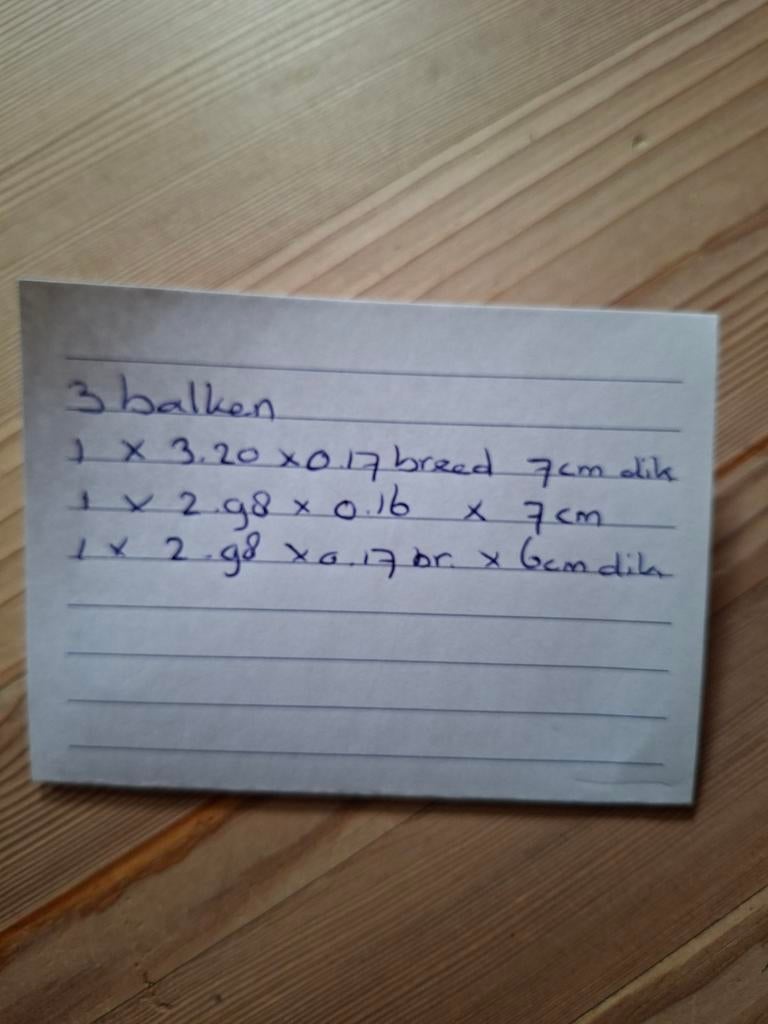 3 balken
1 x 3.20 x 0.17 breed 7cm dik
1 x 2.98 x 0.16 x 7cm
1 x 2.98 x 0.17 br. x 6cm dik